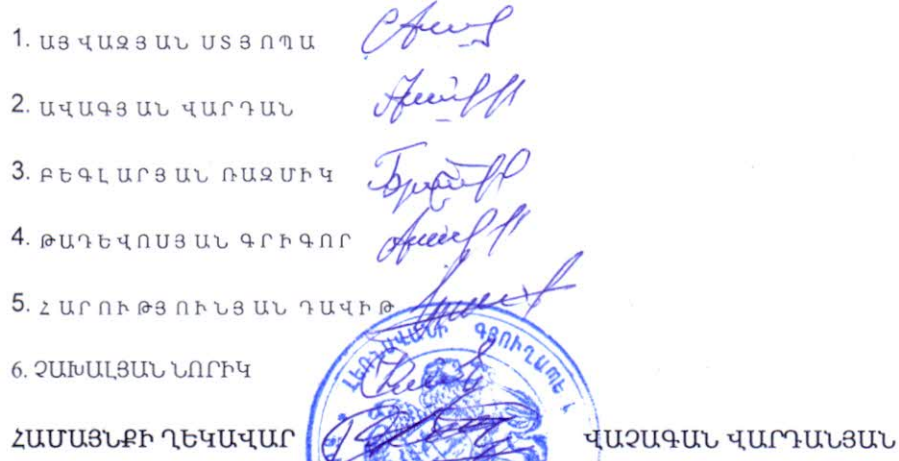 1. ԱՅՎԱԶՅԱՆ ՍՏՅՈՊԱ
2. ԱՎԱԳՅԱՆ ՎԱՐԴԱՆ
3. ԲԵԳԼԱՐՅԱՆ ՌԱԶՄԻԿ
4. ԹԱԴԵՎՈՍՅԱՆ ԳՐԻԳՈՐ
5. ՀԱՐՈՒԹՅՈՒՆՅԱՆ ԴԱՎԻԹ
6. ՉԱԽԱԼՅԱՆ ՆՈՐԻԿ
ՀԱՄԱՅՆՔԻ ՂԵԿԱՎԱՐ ՎԱՉԱԳԱՆ ՎԱՐԴԱՆՅԱՆ